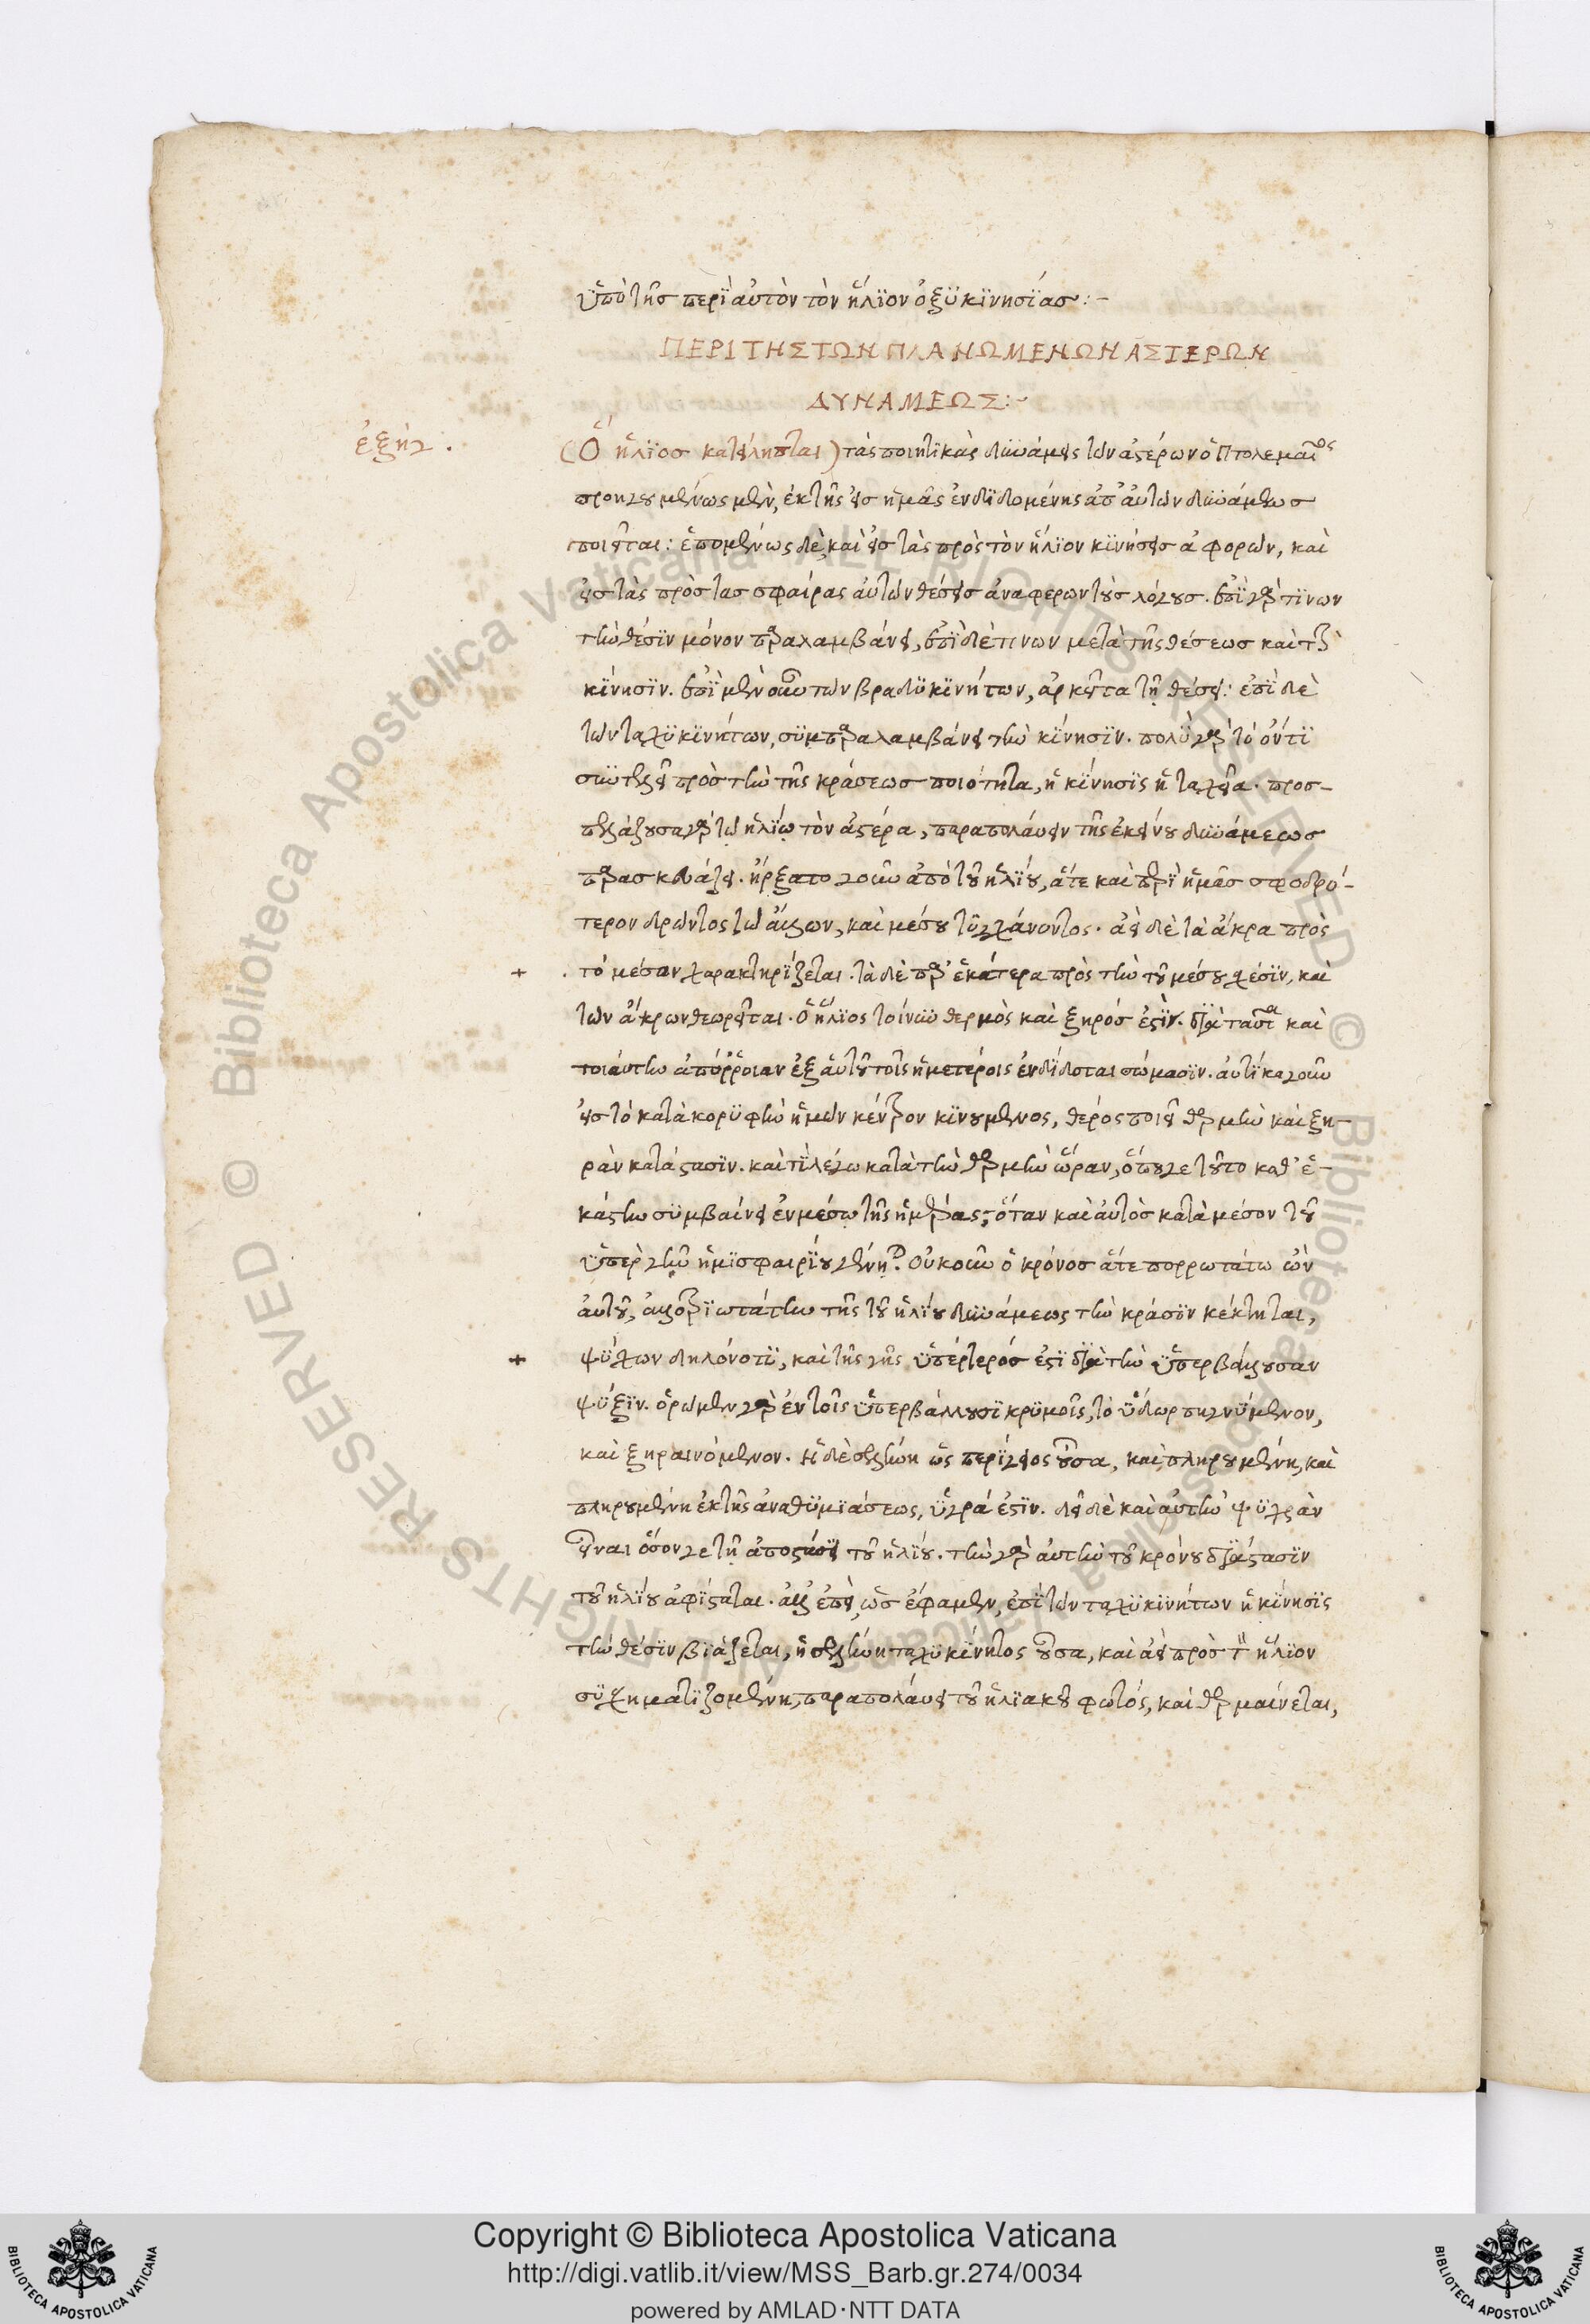 ὑπὸ τῆς περὶ αὐτὸν τὸν ἥλιον ὀξυκινησίας :-
ΠΕΡΙ ΤΗΣ ΤΩΝ ΠΛΑΝΩΜΕΝΩΝ ΑΣΤΕΡΩΝ
ΔΥΝΑΜΕΩΣ :-
ἐξήγ.
(Ὁ ἥλιος κατείληπται) τὰς ποιητικὰς δυνάμεις τῶν ἀστέρων ὁ Πτολεμαῖος
προηγουμένως μὲν, ἐκ τῆς εἰς ἡμᾶς ἐνδιδομένης ἀπ' αὐτῶν δυνάμεως
ποιεῖται: ἑπομένως δὲ, καὶ εἰς τὰς πρὸς τὸν ἥλιον κινήσεις ἀφορῶν, καὶ
εἰς τὰς πρὸς τὰς σφαίρας αὐτῶν θέσεις ἀναφέρων τοὺς λόγους. ἐπὶ γάρ τινων
τὴν θέσιν μόνον παραλαμβάνει, ἐπὶ δέ τινων μετὰ τῆς θέσεως καὶ τὴν
κίνησιν. ἐπὶ μὲν οὖν τῶν βραδυκινήτων, ἀρκεῖται τῇ θέσει: ἐπὶ δὲ
τῶν ταχυκινήτων, συμπαραλαμβάνει τὴν κίνησιν. πολὺ γὰρ τὸ ὄντι
συντελεῖ πρὸς τὴν τῆς κράσεως ποιότητα, ἡ κίνησις ἡ ταχεῖα. προσ-
πελάζουσα γὰρ τῷ ἡλίῳ τὸν ἀστέρα, παραπολάυειν τῆς ἐκείνου δυνάμεως
παρασκευάζει. ἤρξατο γοῦν ἀπὸ τοῦ ἡλίου, ἅτε καὶ περὶ ἡμᾶς σφοδρό-
τερον δρῶντος τῶν ἄλλων, καὶ μέσου τυγχάνοντος. ἀεὶ δὲ τὰ ἄκρα πρὸς
+ τὸ μέσον χαρακτηρίζεται. τὰ δὲ παρ' ἑκάτερα πρὸς τὴν τοῦ μέσου σχέσιν, καὶ
τῶν ἄκρων θεωρεῖται. ὁ ἥλιος τοίνυν θερμὸς καὶ ξηρός ἐστιν. διὰ ταῦτα καὶ
τοιαύτην ἀπόρροιαν ἐξ αὑτοῦ τοῖς ἡμετέροις ἐνδίδοται σώμασιν. αὐτίκα γοῦν
εἰς τὸ κατὰ κορυφὴν ἡμῶν κέντρον κινούμενος, θέρος ποιεῖ θερμὴν καὶ ξη-
ρὰν κατάστασιν. καὶ τί λέγω κατὰ τὴν θερμὴν ὥραν, ὅπουγε τοῦτο καθ' ἑ-
κάστην συμβαίνει ἐν μέσῳ τῆς ἡμέρας; ὅταν καὶ αὐτὸς κατὰ μέσον τοῦ
ὑπὲρ γῆν ἡμισφαιρίου γένηται. Οὐκοῦν ὁ κρόνος ἅτε πορρωτάτω ὢν
αὐτοῦ, ἀλλοτριωτάτην τῆς τοῦ ἡλίου δυνάμεως τὴν κράσιν κέκτηται,
+ ψύχων δηλονότι, καὶ τῆς γῆς ὑπέρτερός ἐστι διὰ τὴν ὑπερβάλλουσαν
ψύξιν. ὁρῶμεν γὰρ ἐν τοῖς ὑπερβάλλουσι κρυμοῖς, τὸ ὕδωρ πηγνύμενον,
καὶ ξηραινόμενον. Ἡ δὲ σελήνη ὡς περίγειος οὖσα, καὶ πληρουμένη, καὶ
πληρουμένη ἐκ τῆς ἀναθυμιάσεως, ὑγρά ἐστιν. δεῖ δὲ καὶ αὐτὴν ψυχρὰν
εἶναι ὅσον γε τῇ ἀποστάσει τοῦ ἡλίου. τὴν γὰρ αὐτὴν τοῦ κρόνου διάστασιν
τοῦ ἡλίου ἀφίσταται. ἀλλ' ἐπεὶ, ὡς ἔφαμεν, ἐπὶ τῶν ταχυκινήτων ἡ κίνησις
τὴν θέσιν βιάζεται, ἡ σελήνη ταχυκίνητος οὖσα, καὶ ἀεὶ πρὸς τὸν ἥλιον
συσχηματιζομένη, παραπολάυει τοῦ ἡλιακοῦ φωτός, καὶ θερμαίνεται,
© Biblioteca Apostolica Vaticana ALL RIGHTS RESERVED
© Biblioteca Apostolica Vaticana ALL RIGHTS RESERVED
Copyright © Biblioteca Apostolica Vaticana
http://digi.vatlib.it/view/MSS_Barb.gr.274/0034
powered by AMLAD·NTT DATA
BIBLIOTECA APOSTOLICA VATICANA
BIBLIOTECA APOSTOLICA VATICANA